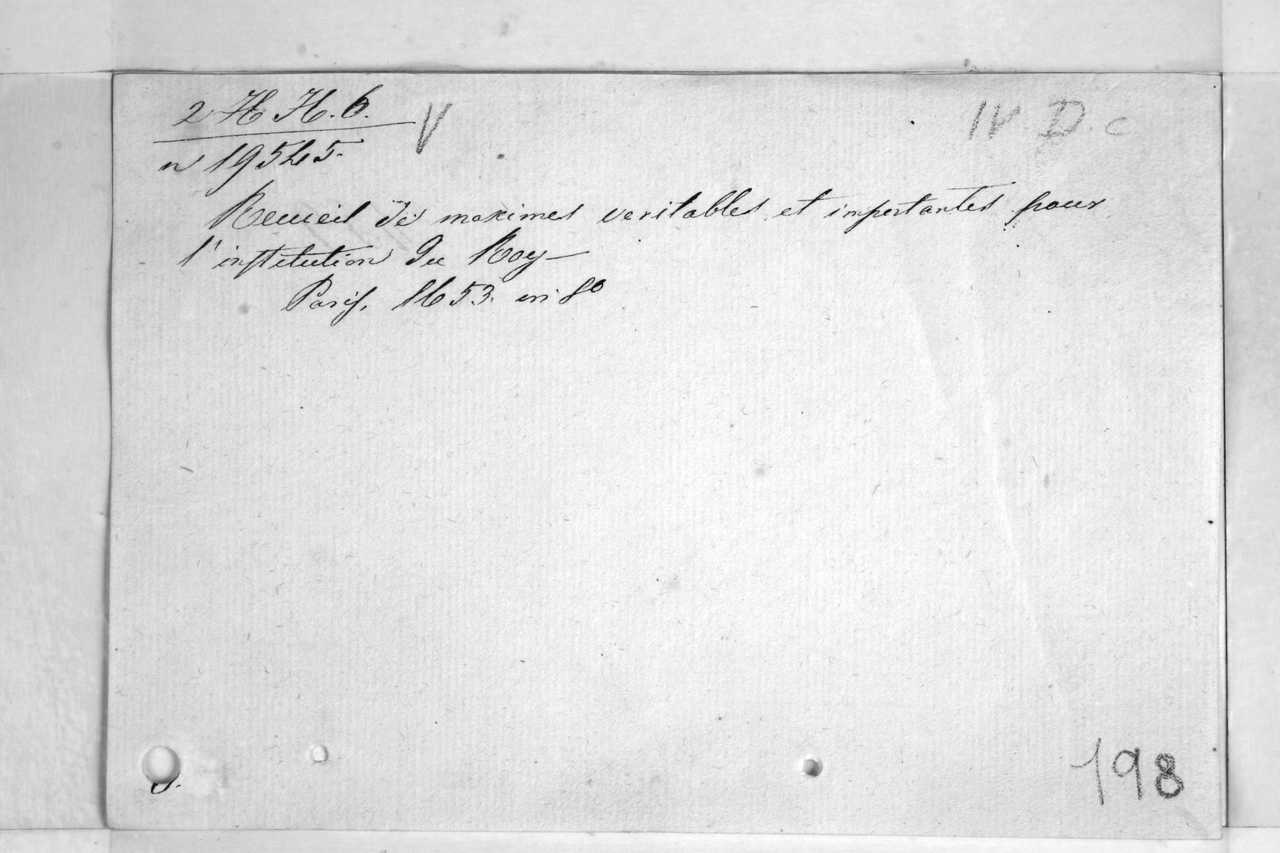 2 H H. 6. V IV D. c
n 19545.
Recueil de maximes veritables et importantes pour
l'institution du Roy—
Paris, 1653. in 8º
198